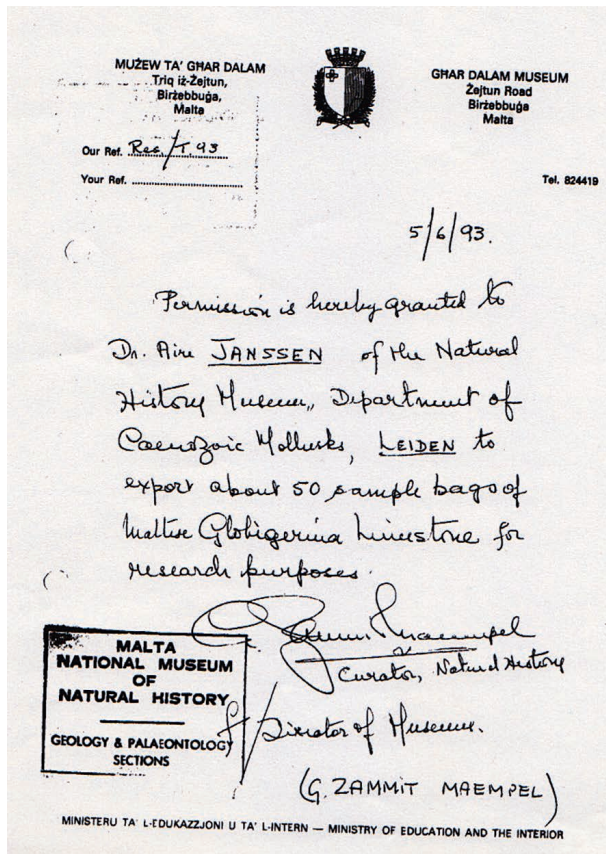 MUŻEW TA' GĦAR DALAM
Triq iż-Żejtun,
Birżebbuġa,
Malta
GĦAR DALAM MUSEUM
Żejtun Road
Birżebbuġa
Malta
Our Ref. Res/T.93
Your Ref.
Tel. 824419
5/6/93.
Permission is hereby granted to
Dr. Aire JANSSEN of the Natural
History Museum, Department of
Caenozoic Mollusks, LEIDEN to
export about 50 sample bags of
Maltese Globigerina Limestone for
research purposes.
Zammit Maempel
Curator, Natural History
f/ Director of Museums.
(G. ZAMMIT MAEMPEL)
MALTA
NATIONAL MUSEUM
OF
NATURAL HISTORY
GEOLOGY & PALAEONTOLOGY
SECTIONS
MINISTERU TA' L-EDUKAZZJONI U TA' L-INTERN — MINISTRY OF EDUCATION AND THE INTERIOR